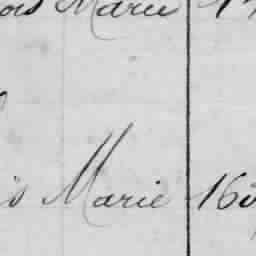 ois Marie 1
is Marie 16